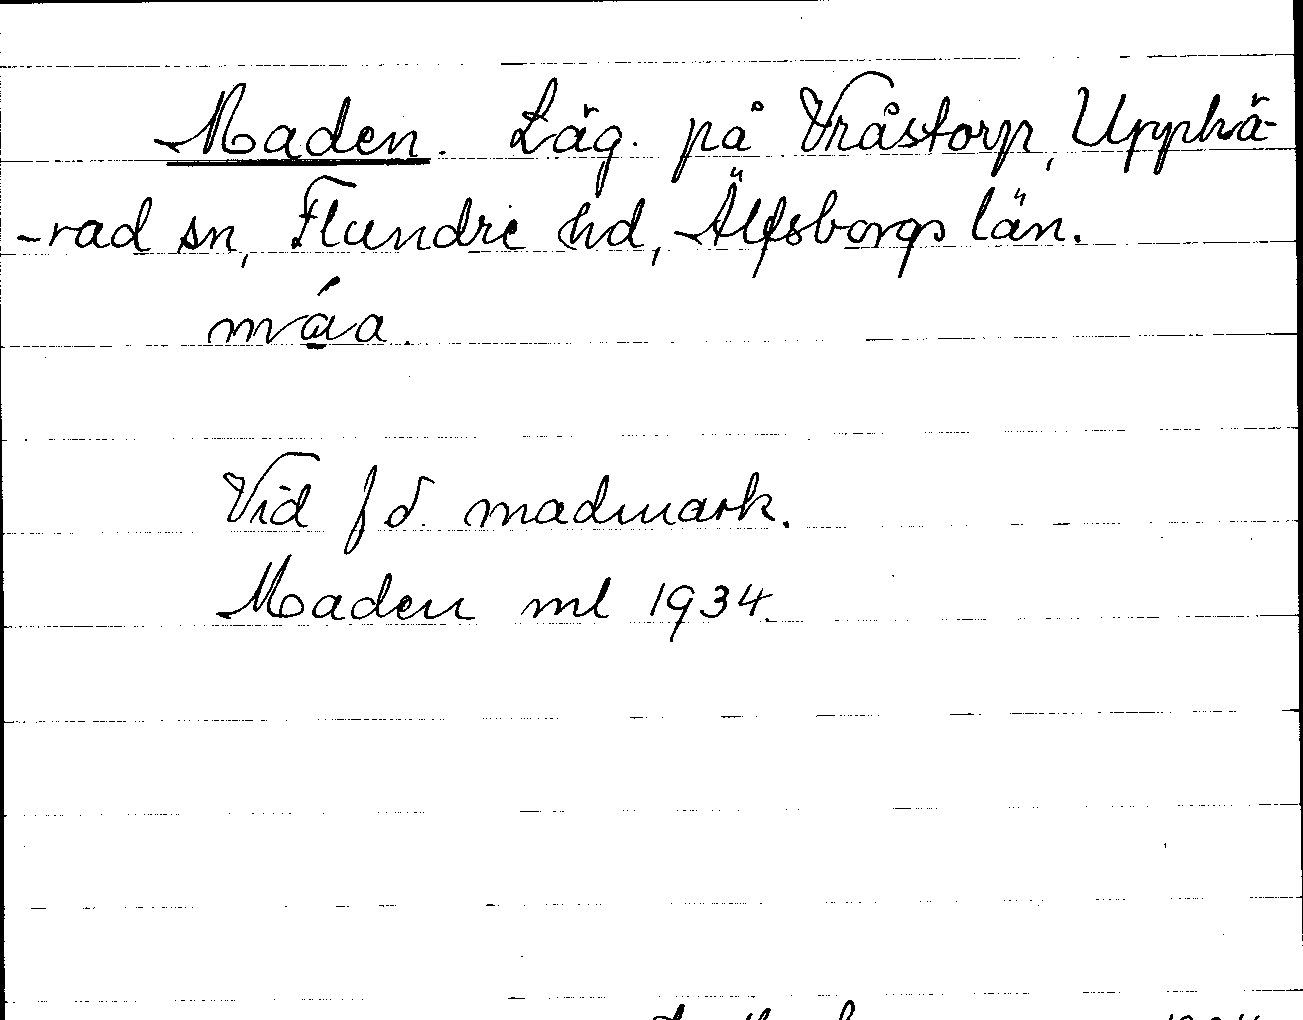 Maden. Läg. på Vråstorp, Upphä-
-rad sn, Flundre hd, Älfsborgs län.
máa.
Vid f d. madmark.
Maden ml 1934.